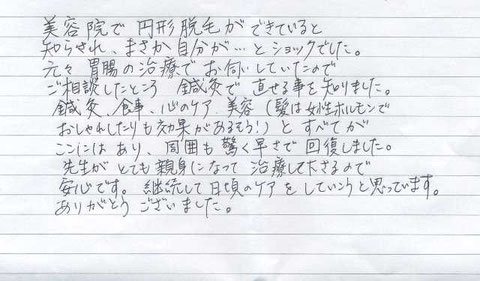 美容院で 円形脱毛ができていると
知らされ、まさか自分が…とショックでした。
元々 胃腸の治療で お伺いしていたので
ご相談したところ 鍼灸で 直せる事を知りました。
鍼灸、食事、心のケア、美容（髪は女性ホルモンで
おしゃれしたりも効果があるそう！）と すべてが
ここにはあり、周囲も 驚く早さで 回復しました。
先生が とても親身になって 治療して下さるので
安心です。継続して 日頃のケアを していこうと思っています。
ありがとう ございました。